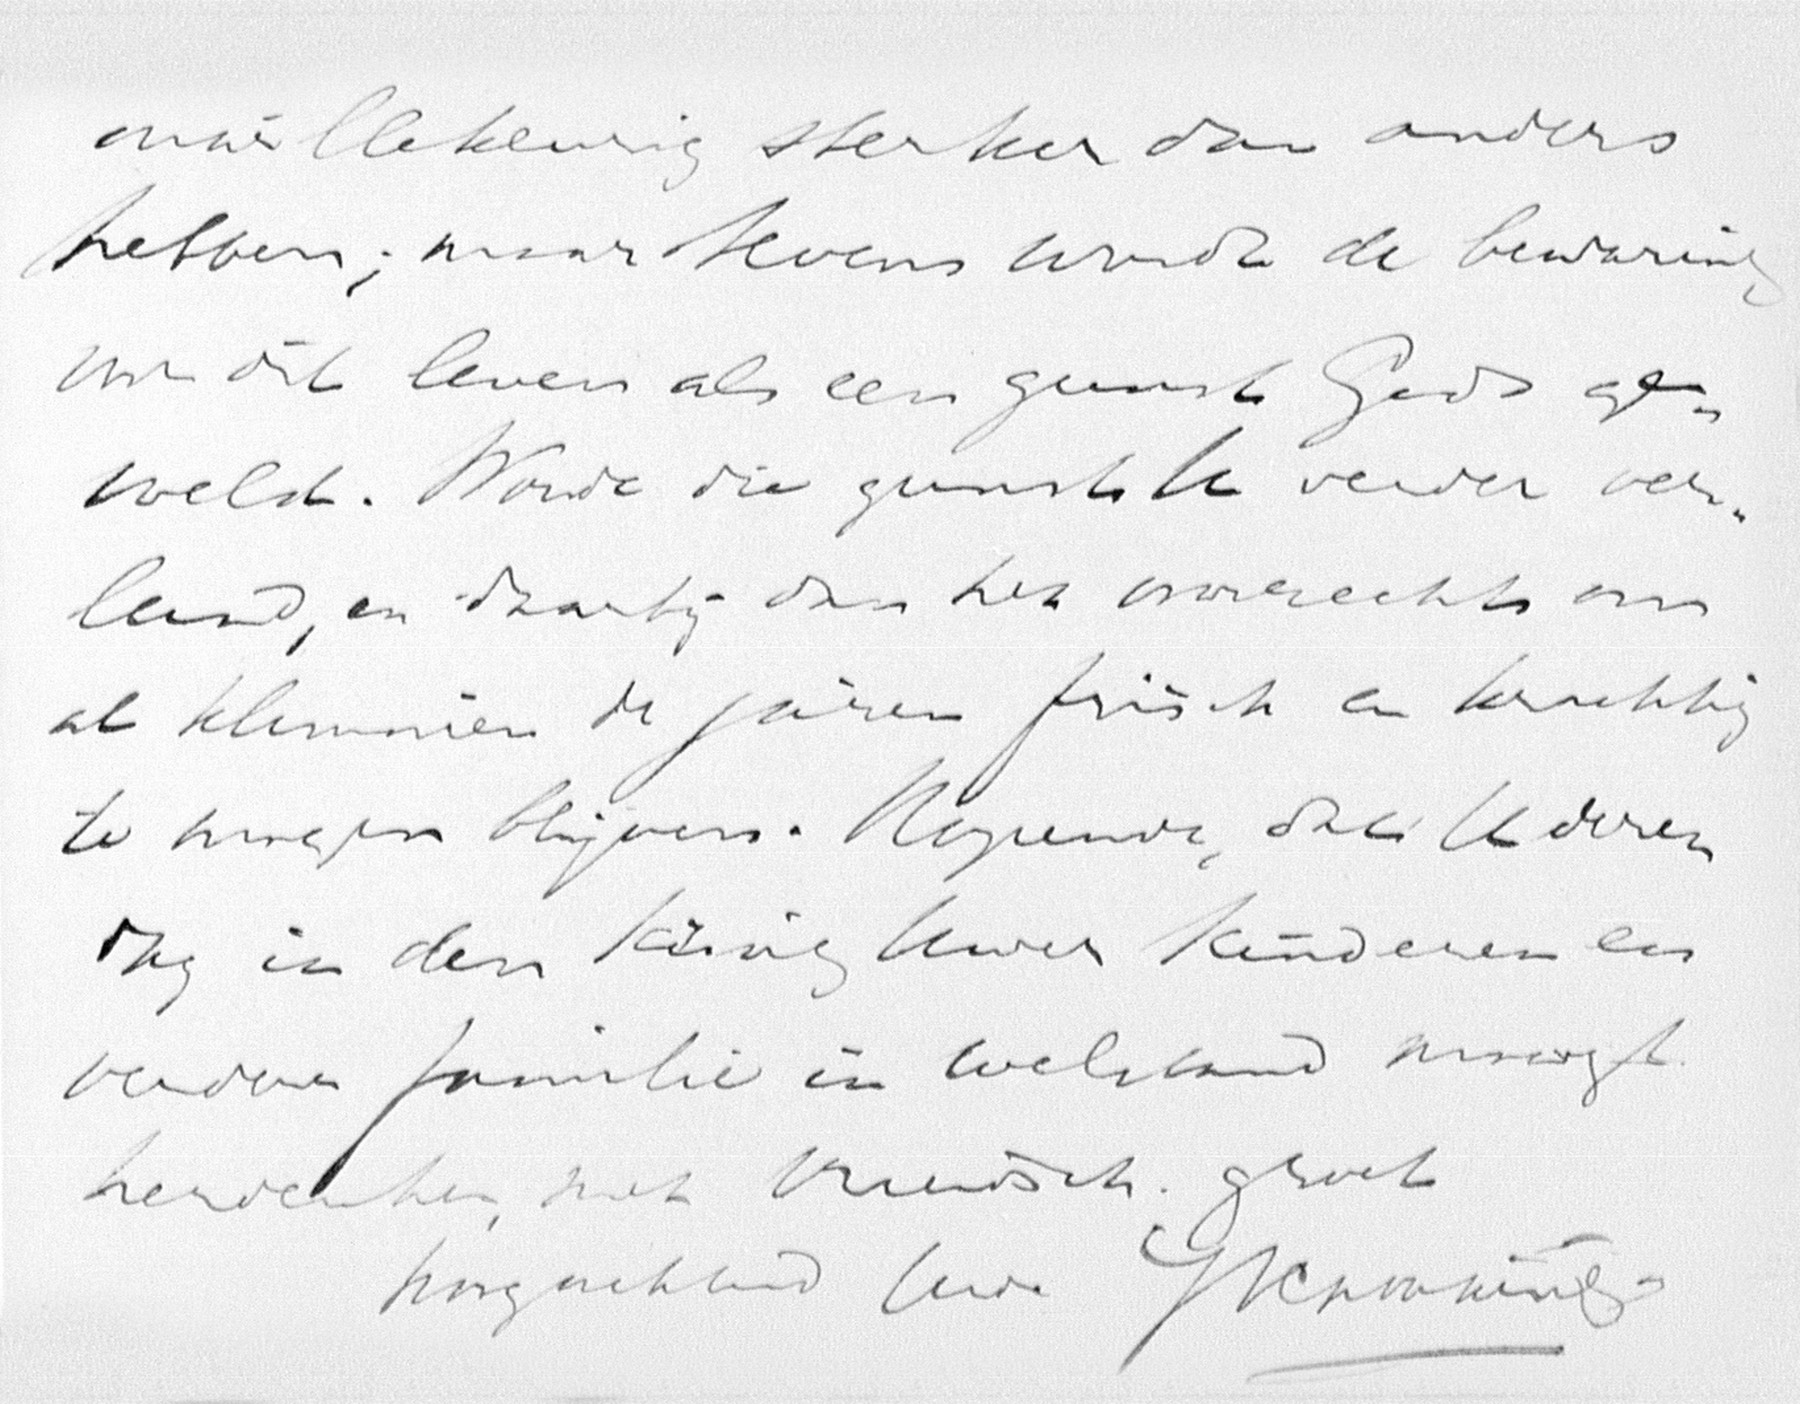 onwillekeurig sterker dan anders
hebben; maar tevens wordt de bewaring
van dit leven als een gunst Gods ge-
voeld. Worde die gunst U verder ver-
leend, en daarbij dan het voorrecht om
al klimmen de jaren frisch en krachtig
te mogen blijven. Hopende, dat U dezen
dag in den kring Uwer kinderen en
verdere familie in welstand moogt
herdenken, met vriendsch. groet
hoogachtend Uwe